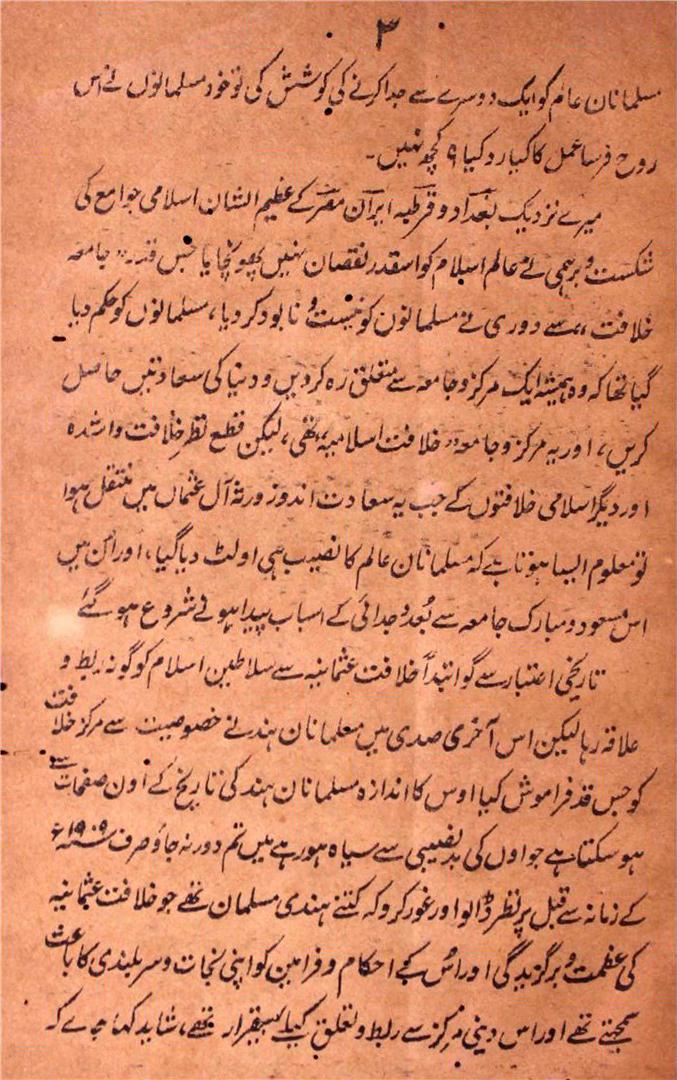 ۳
مسلمانان عالم کو ایک دوسرے سے جدا کرنے کی کوشش کی تو خود مسلمانوں نے اس
روح فرسا عمل کا کیا رد کیا ؟ کچھ نہیں۔
میرے نزدیک بغداد و قرطبہ ایران مصر کے عظیم الشان اسلامی جوامع کی
شکست و برہمی نے عالم اسلام کو اسقدر نقصان نہیں پھونچایا جس قدر „ جامعہ
خلافت ،، سے دوری نے مسلمانوں کو نیست و نابود کر دیا ، مسلمانوں کو حکم دیا
گیا تھا کہ وہ ہمیشہ ایک مرکز و جامعہ سے متعلق رہ کر دین و دنیا کی سعادتیں حاصل
کریں ، اور یہ مرکز و جامعہ „ خلافت اسلامیہ ،، تھی ، لیکن قطع نظر خلافت راشدہ
اور دیگر اسلامی خلافتوں کے جب یہ سعادت اندوز ورثہ آل عثماں میں منتقل ہوا
تو معلوم ایسا ہوتا ہے کہ مسلمانان عالم کا نصیب ہی اولٹ دیا گیا ، اور اُن میں
اس مسعود و مبارک جامعہ سے بُعد و جدائی کے اسباب پیدا ہونے شروع ہو گئے
تاریخی اعتبار سے گو ابتدأ خلافت عثمانیہ سے سلاطین اسلام کو گونہ ربط و
علاقہ رہا لیکن اس آخری صدی میں مسلمانان ہند نے خصوصیت سے مرکز خلافت
کو جس قدر فراموش کیا اوس کا اندازہ مسلمانان ہند کی تاریخ کے اون صفحات سے
ہو سکتا ہے جو اوں کی بد نصیبی سے سیاہ ہو رہے ہیں تم دور نہ جاؤ صرف سنہ ۱۹۰۹ء
کے زمانہ سے قبل پر نظر ڈالو اور غور کرو کہ کتنے ہندی مسلمان تھے جو خلافت عثمانیہ
کی عظمت و برگزیدگی اور اُس کے احکام و فرامین کو اپنی نجات و سربلندی کا باعث
سمجھتے تھے اور اس دینی مرکز سے ربط و تعلق کیلئے بیقرار تھے ، شاید کہا جائے کہ